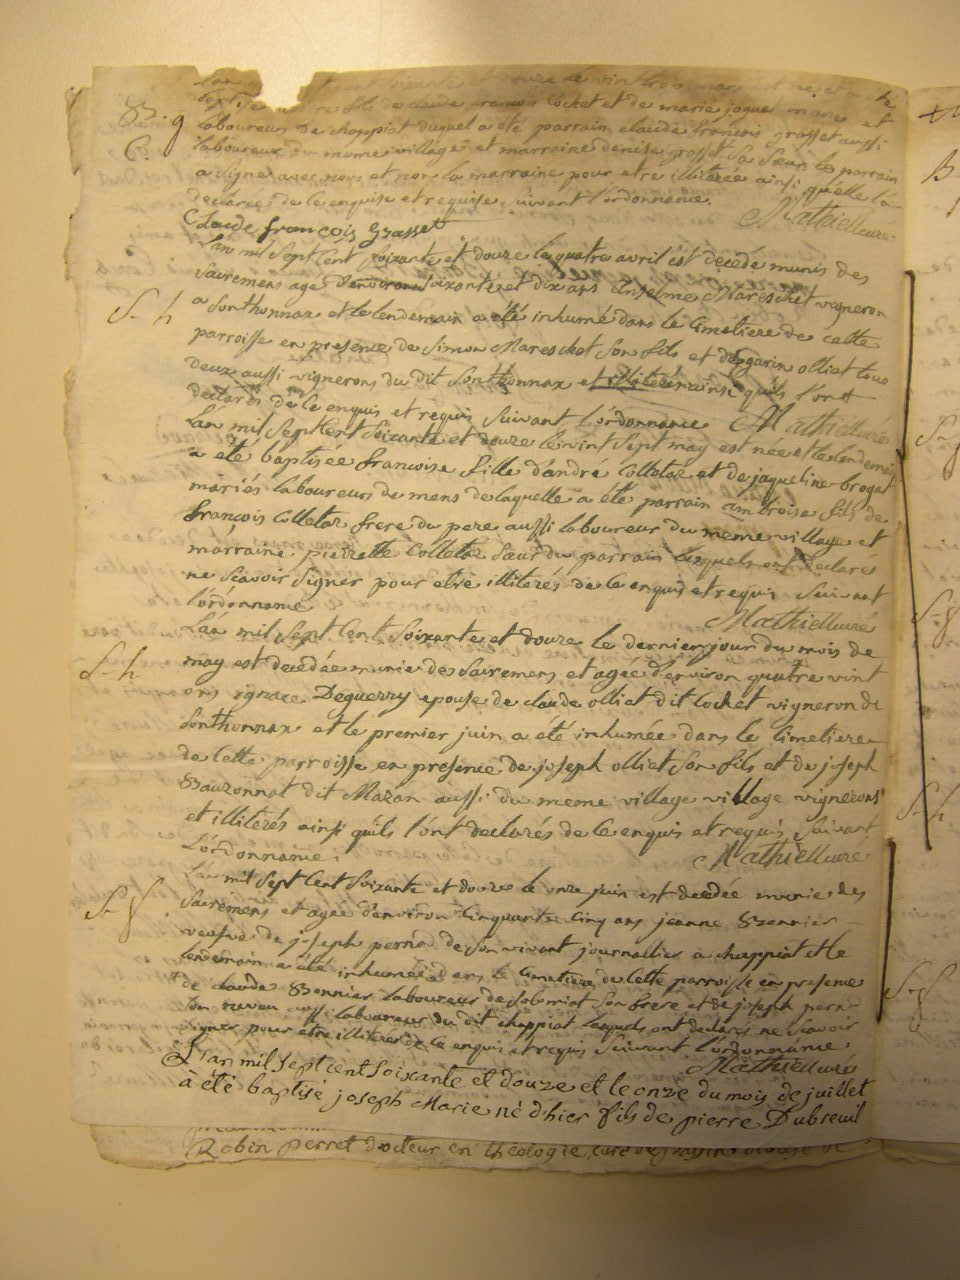 L'an soixante et douze le vint trois mars est né et a été
bapt fils de claude françois Cochet et de marie joquet mariés et
B. g laboureurs de chappiat duquel a été parrain claude françois grasset aussi
C. laboureur du meme village et marraine denise grosset sa sœur le parrain
a signé avec nous et non la marraine pour etre illiterée ainsi quelle la
declarée de ce enquise et requise suivant l'ordonnance. Mathieu curé
Claude françois Grasset
L'an mil sept cent soixante et douze le quatre avril est decedé munis des
sacremens agé d'environ soixante et dix ans Anselme Mareschet vigneron
S-h a Sonthonnax et le lendemain a été inhumé dans le cimetiere de cette
parroisse en presence de Simon Mareschet son fils et de garin olliet tous
deux aussi vignerons du dit Sonthonnax et illiterés ainsi quils l'ont
declarés de ce enquis et requis suivant l'ordonnance Mathieu curé
L'an mil sept cent soixante et douze le vint sept may est née et le lendemain
a été baptisée francoise fille d'andré Colletaz et de jaqueline brogat
mariés laboureurs de mens de laquelle a été parrain ambroise fils de
françois Colletaz frere du pere aussi laboureur du meme village et
marraine pierrette Colletaz sœur du parrain lesquels ont declarés
ne scavoir signer pour etre illiterés de ce enquis et requis suivant
l'ordonnance Mathieu curé
L'an mil sept cent soixante et douze le dernier jour du mois de
S-h may est decedée munie des sacremens et agée d'environ quatre vint
ans ignace Deguerry epouse de claude olliet dit Cochet vigneron de
Sonthonnax et le premier juin a été inhumée dans le cimetiere
de cette parroisse en presence de joseph olliet son fils et de joseph
Bauzonnat dit Mazan aussi du meme village village vignerons
et illiterés ainsi quils l'ont declarés de ce enquis et requis suivant
l'ordonnance. Mathieu curé
L'an mil sept cent soixante et douze le onze juin est decedée munie des
S-g sacremens et agée d'environ cinquante cinq ans jeanne Bonnier
veufve de joseph pernod de son vivant journallier a chappiat et le
lendemain a été inhumée dans le cimetiere de cette parroisse en presence
de claude Bonnier laboureur de Solomiat son frere et de joseph pern-
son neveu aussi laboureur du dit chappiat lesquels ont declarés ne scavoir
signer pour etre illiterés de ce enquis et requis suivant l'ordonnance
Mathieu curé
L'an mil sept cent soixante et douze et le onze du mois de juillet
à été baptisé joseph Marie né d'hier fils de pierre Dubreuil
Robin perret docteur en théologie, curé